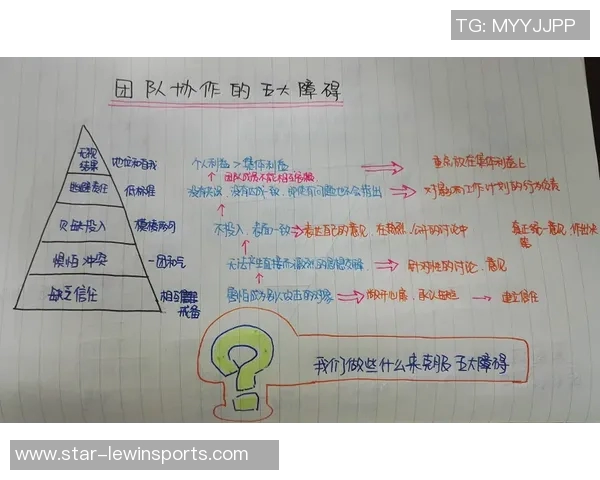 TG: MYYJJPP
团队协作的五大障碍
无视
结果
地位和自我
个人利益 > 集体利益
重点放在集体利益上
团队成员不能相互
逃避责任
低标准
没有达成一致
对影响工作计划的行为负责
欠缺投入
模棱两可
不投入,表面一致
表达自己的意见,在热烈、公开的讨论中
真正统一意见,作出决策
惧怕冲突
一团和气
无法产生直接而激烈的思想交锋
针对性的讨论、意见
缺乏信任
相互
戒备
害怕成为别人攻击的对象
敞开心扉,承认缺点
建立信任
?
我们做些什么来克服五大障碍
www.star-lewinsports.com